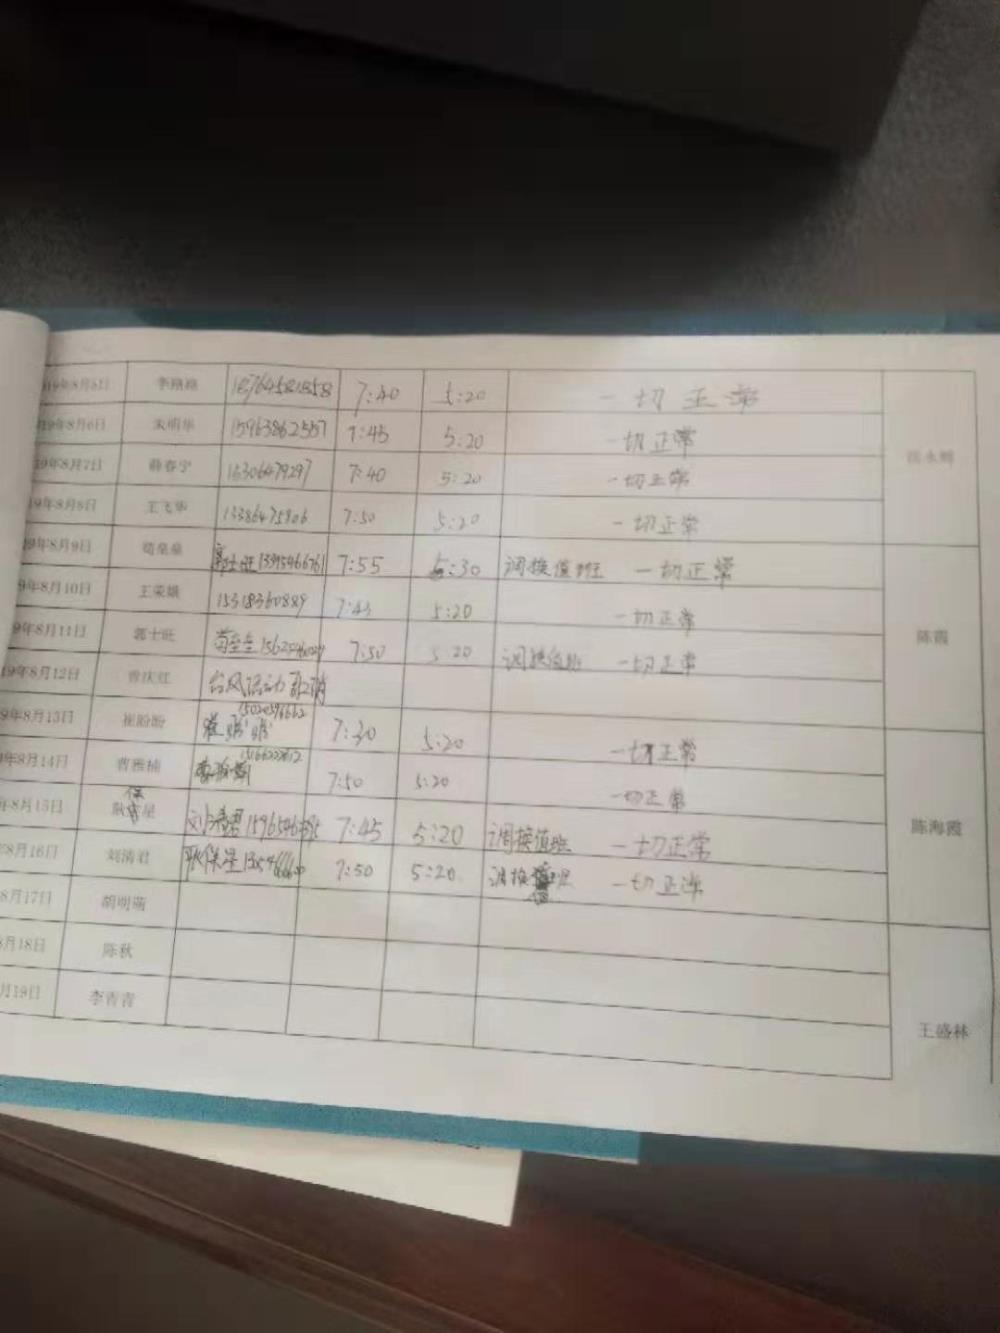 19年8月5日 李 18764581858 7:40 5:20 一切正常
19年8月6日 朱明华 15963862557 7:45 5:20 一切正常
19年8月7日 薛春宁 7:40 5:20 一切正常
19年8月8日 王飞华 7:50 5:20 一切正常
19年8月9日 郭士旺 13395466761 7:55 5:30 调换值班 一切正常
9年8月10日 王荣娥 15318360889 7:43 5:20 一切正常
陈霞
9年8月11日 郭士旺 7:50 5:20 调换值班 一切正常
19年8月12日 曾庆红 台风
9年8月13日 崔盼盼 7:30 5:20 一切正常
9年8月14日 曹雅楠 7:50 5:20 一切正常
年8月15日 耿保星 7:45 5:20 调换值班 一切正常
陈海霞
年8月16日 刘清君 耿保星 7:50 5:20 调换值班 一切正常
8月17日 胡明萌
月18日 陈秋
月19日 李青青
王盛林